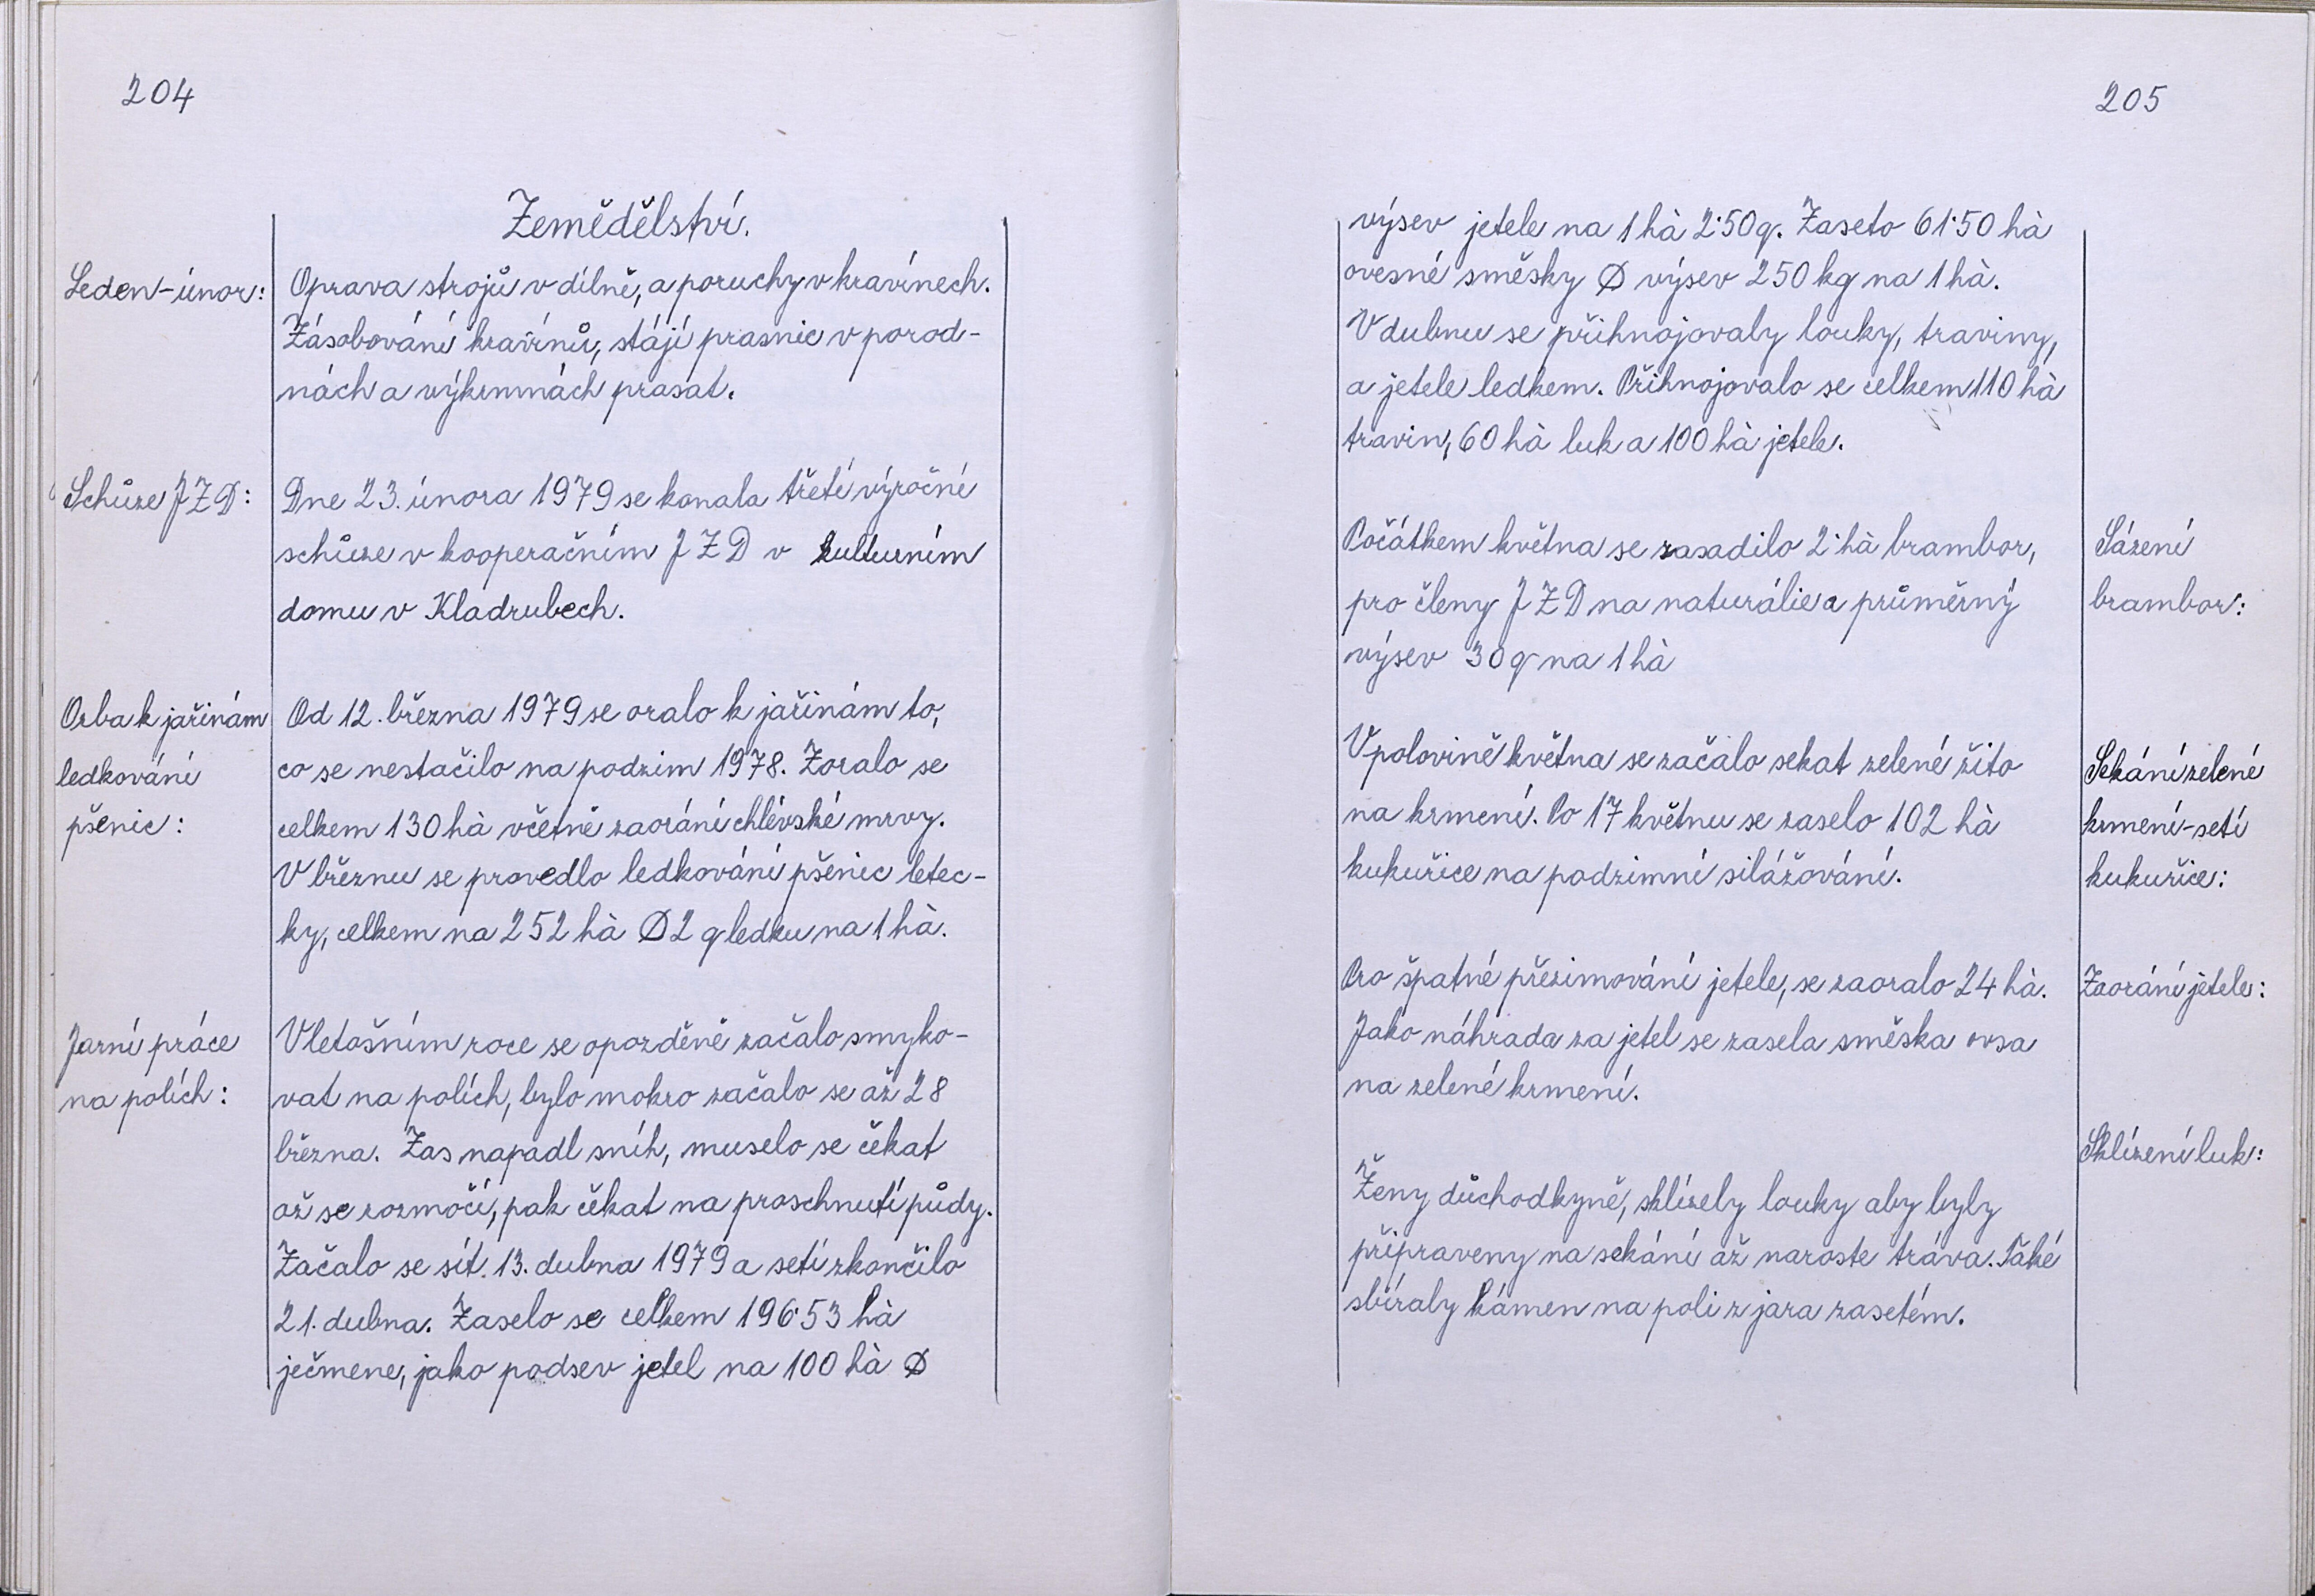 204
Zemědělství.
Leden-únor:
Oprava strojů v dílně, a poruchy v kravínech.
Zásobování kravínů, stájí prasnic v porod-
nách a výkrmnách prasat.
Schůze JZD:
Dne 23. února 1979 se konala třetí výroční
schůze v kooperačním JZD v kulturním
domu v Kladrubech.
Orba k jařinám
ledkování
pšenic:
Od 12. března 1979 se oralo k jařinám to,
co se nestačilo na podzim 1978. Zoralo se
celkem 130 hà včetně zaorání chlévské mrvy.
V březnu se provedlo ledkování pšenic letec-
ky, celkem na 252 hà Ø 2 q ledku na 1 hà.
Jarní práce
na polích:
V letošním roce se opozděně začalo smyko-
vat na polích, bylo mokro začalo se až 28
března. Zas napadl sníh, muselo se čekat
až se rozmočí, pak čekat na proschnutí půdy.
Začalo se sít. 13. dubna 1979 a setí zkončilo
21. dubna. Zaselo se celkem 196·53 hà
ječmene, jako podsev jetel na 100 hà Ø
205
výsev jetele na 1 hà 2·50 q. Zaseto 61·50 hà
ovesné směsky Ø výsev 250 kg na 1 hà.
V dubnu se přihnojovaly louky, traviny,
a jetele ledkem. Přihnojovalo se celkem 110 hà
travin, 60 hà luk a 100 hà jetele.
Počátkem května se zasadilo 2·hà brambor,
pro členy JZD na naturálie a průměrný
výsev 30 q na 1 hà
Sázení
brambor:
V polovině května se začalo sekat zelené žito
na krmení. Po 17 květnu se zaselo 102 hà
kukuřice na podzimní silážování.
Sekání zelené
krmení-setí
kukuřice:
Pro špatné přezimování jetele, se zaoralo 24 hà.
Jako náhrada za jetel se zasela směska ovsa
na zelené krmení.
Zaorání jetele:
Sklízení luk:
Ženy důchodkyně, sklízely louky aby byly
připraveny na sekání až naroste tráva. Také
sbíraly kámen na poli z jara zasetém.